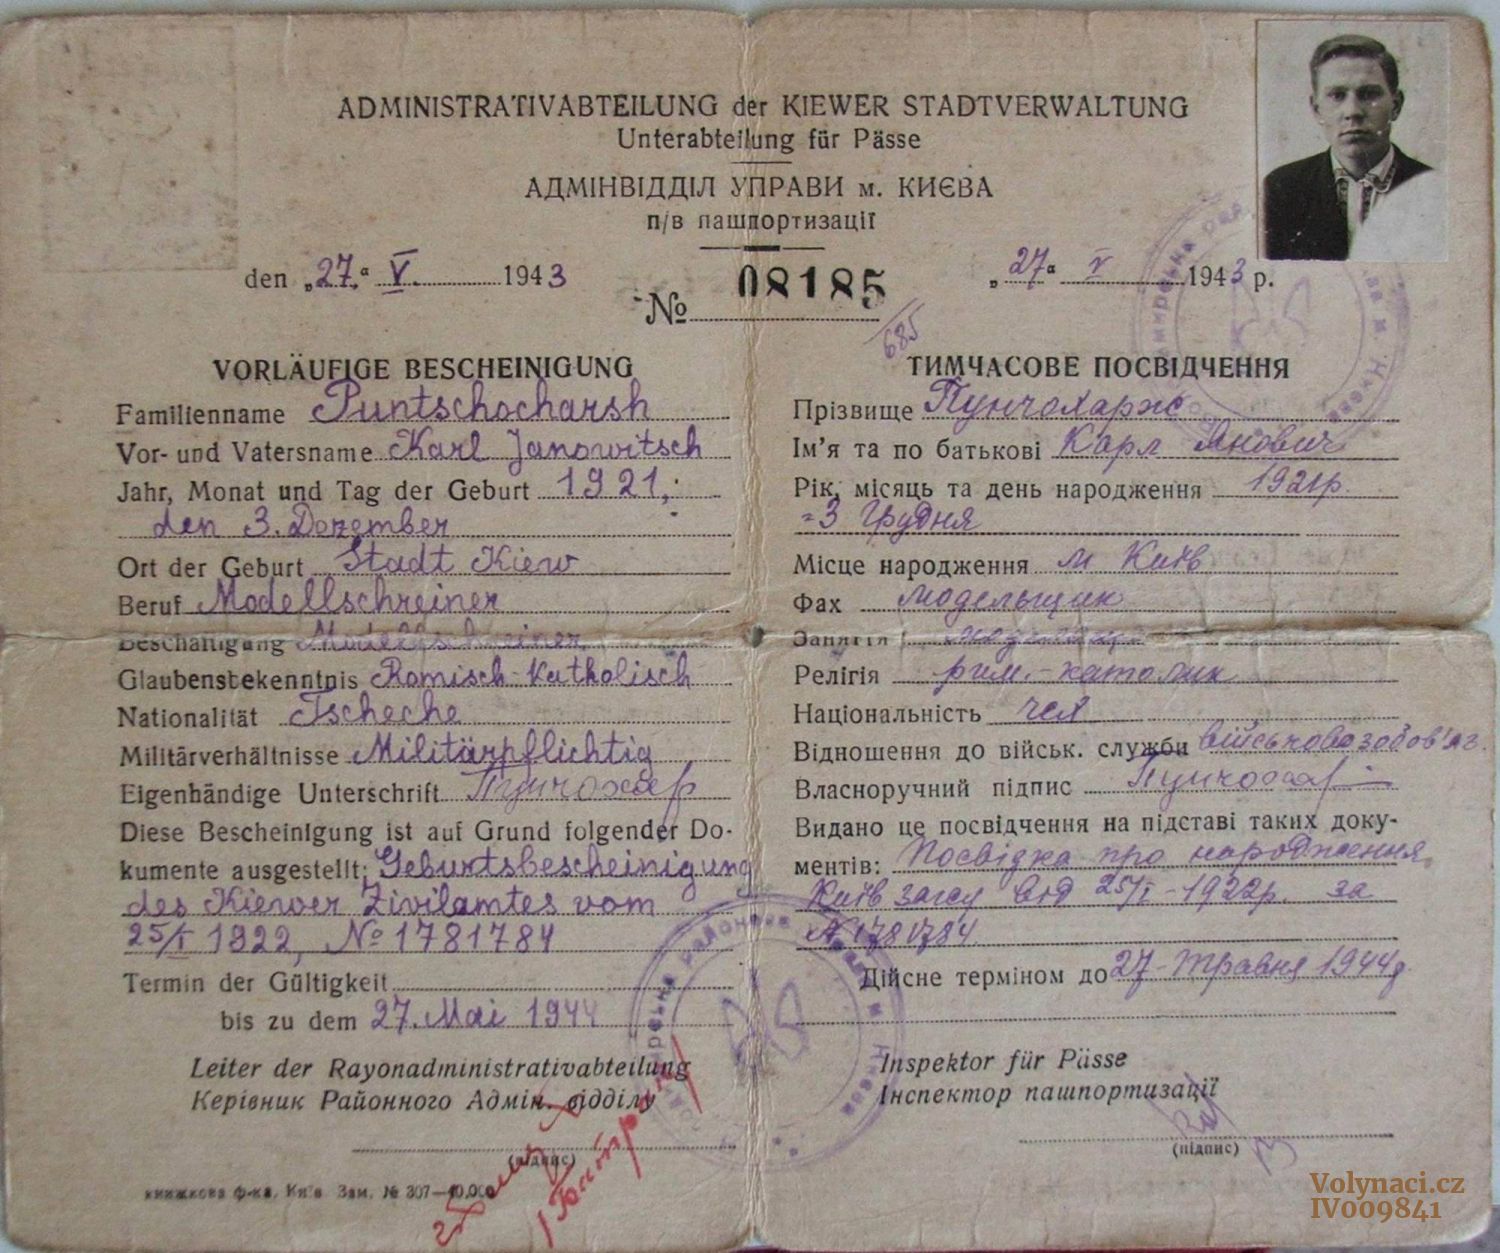 ADMINISTRATIVABTEILUNG der KIEWER STADTVERWALTUNG
Unterabteilung für Pässe
АДМІНВІДДІЛ УПРАВИ м. КИЄВА
п/в пашпортизації
den „27.“ V. 1943
„27“ V 1943 р.
№ 08185
/685
VORLÄUFIGE BESCHEINIGUNG
Familienname Puntschocharsh
Vor- und Vatersname Karl Janowitsch
Jahr, Monat und Tag der Geburt 1921,
den 3. Dezember
Ort der Geburt Stadt Kiew
Beruf Modellschreiner
Beschäftigung Modellschreiner
Glaubenstekenntnis Römisch-Katholisch
Nationalität Tscheche
Militärverhältnisse Militärpflichtig
Eigenhändige Unterschrift Пунчохар
Diese Bescheinigung ist auf Grund folgender Do-
kumente ausgestellt: Geburtsbescheinigung
des Kiewer Zivilamtes vom
25/I 1922, № 1781784
Termin der Gültigkeit
bis zu dem 27. Mai 1944
Leiter der Rayonadministrativabteilung
Керівник Районного Адмін. відділу
(підпис)
книжкова ф-ка, Київ Зам. № 307—40,000
ТИМЧАСОВЕ ПОСВІДЧЕННЯ
Прізвище Пунчохарж
Ім’я та по батькові Карл Янович
Рік, місяць та день народження 1921р.
3 Грудня
Місце народження м Київ
Фах модельщик
Заняття модельщик
Релігія рим.-католик
Національність чех
Відношення до військ. служби військовозобов'яз.
Власноручний підпис Пунчохар
Видано це посвідчення на підставі таких доку-
ментів: Посвідка про народження
Київ загсу від 25/I-1922р. за
№ 1781784
Дійсне терміном до 27-травня 1944р.
Inspektor für Pässe
Інспектор пашпортизації
(підпис)
Volynaci.cz
IV009841